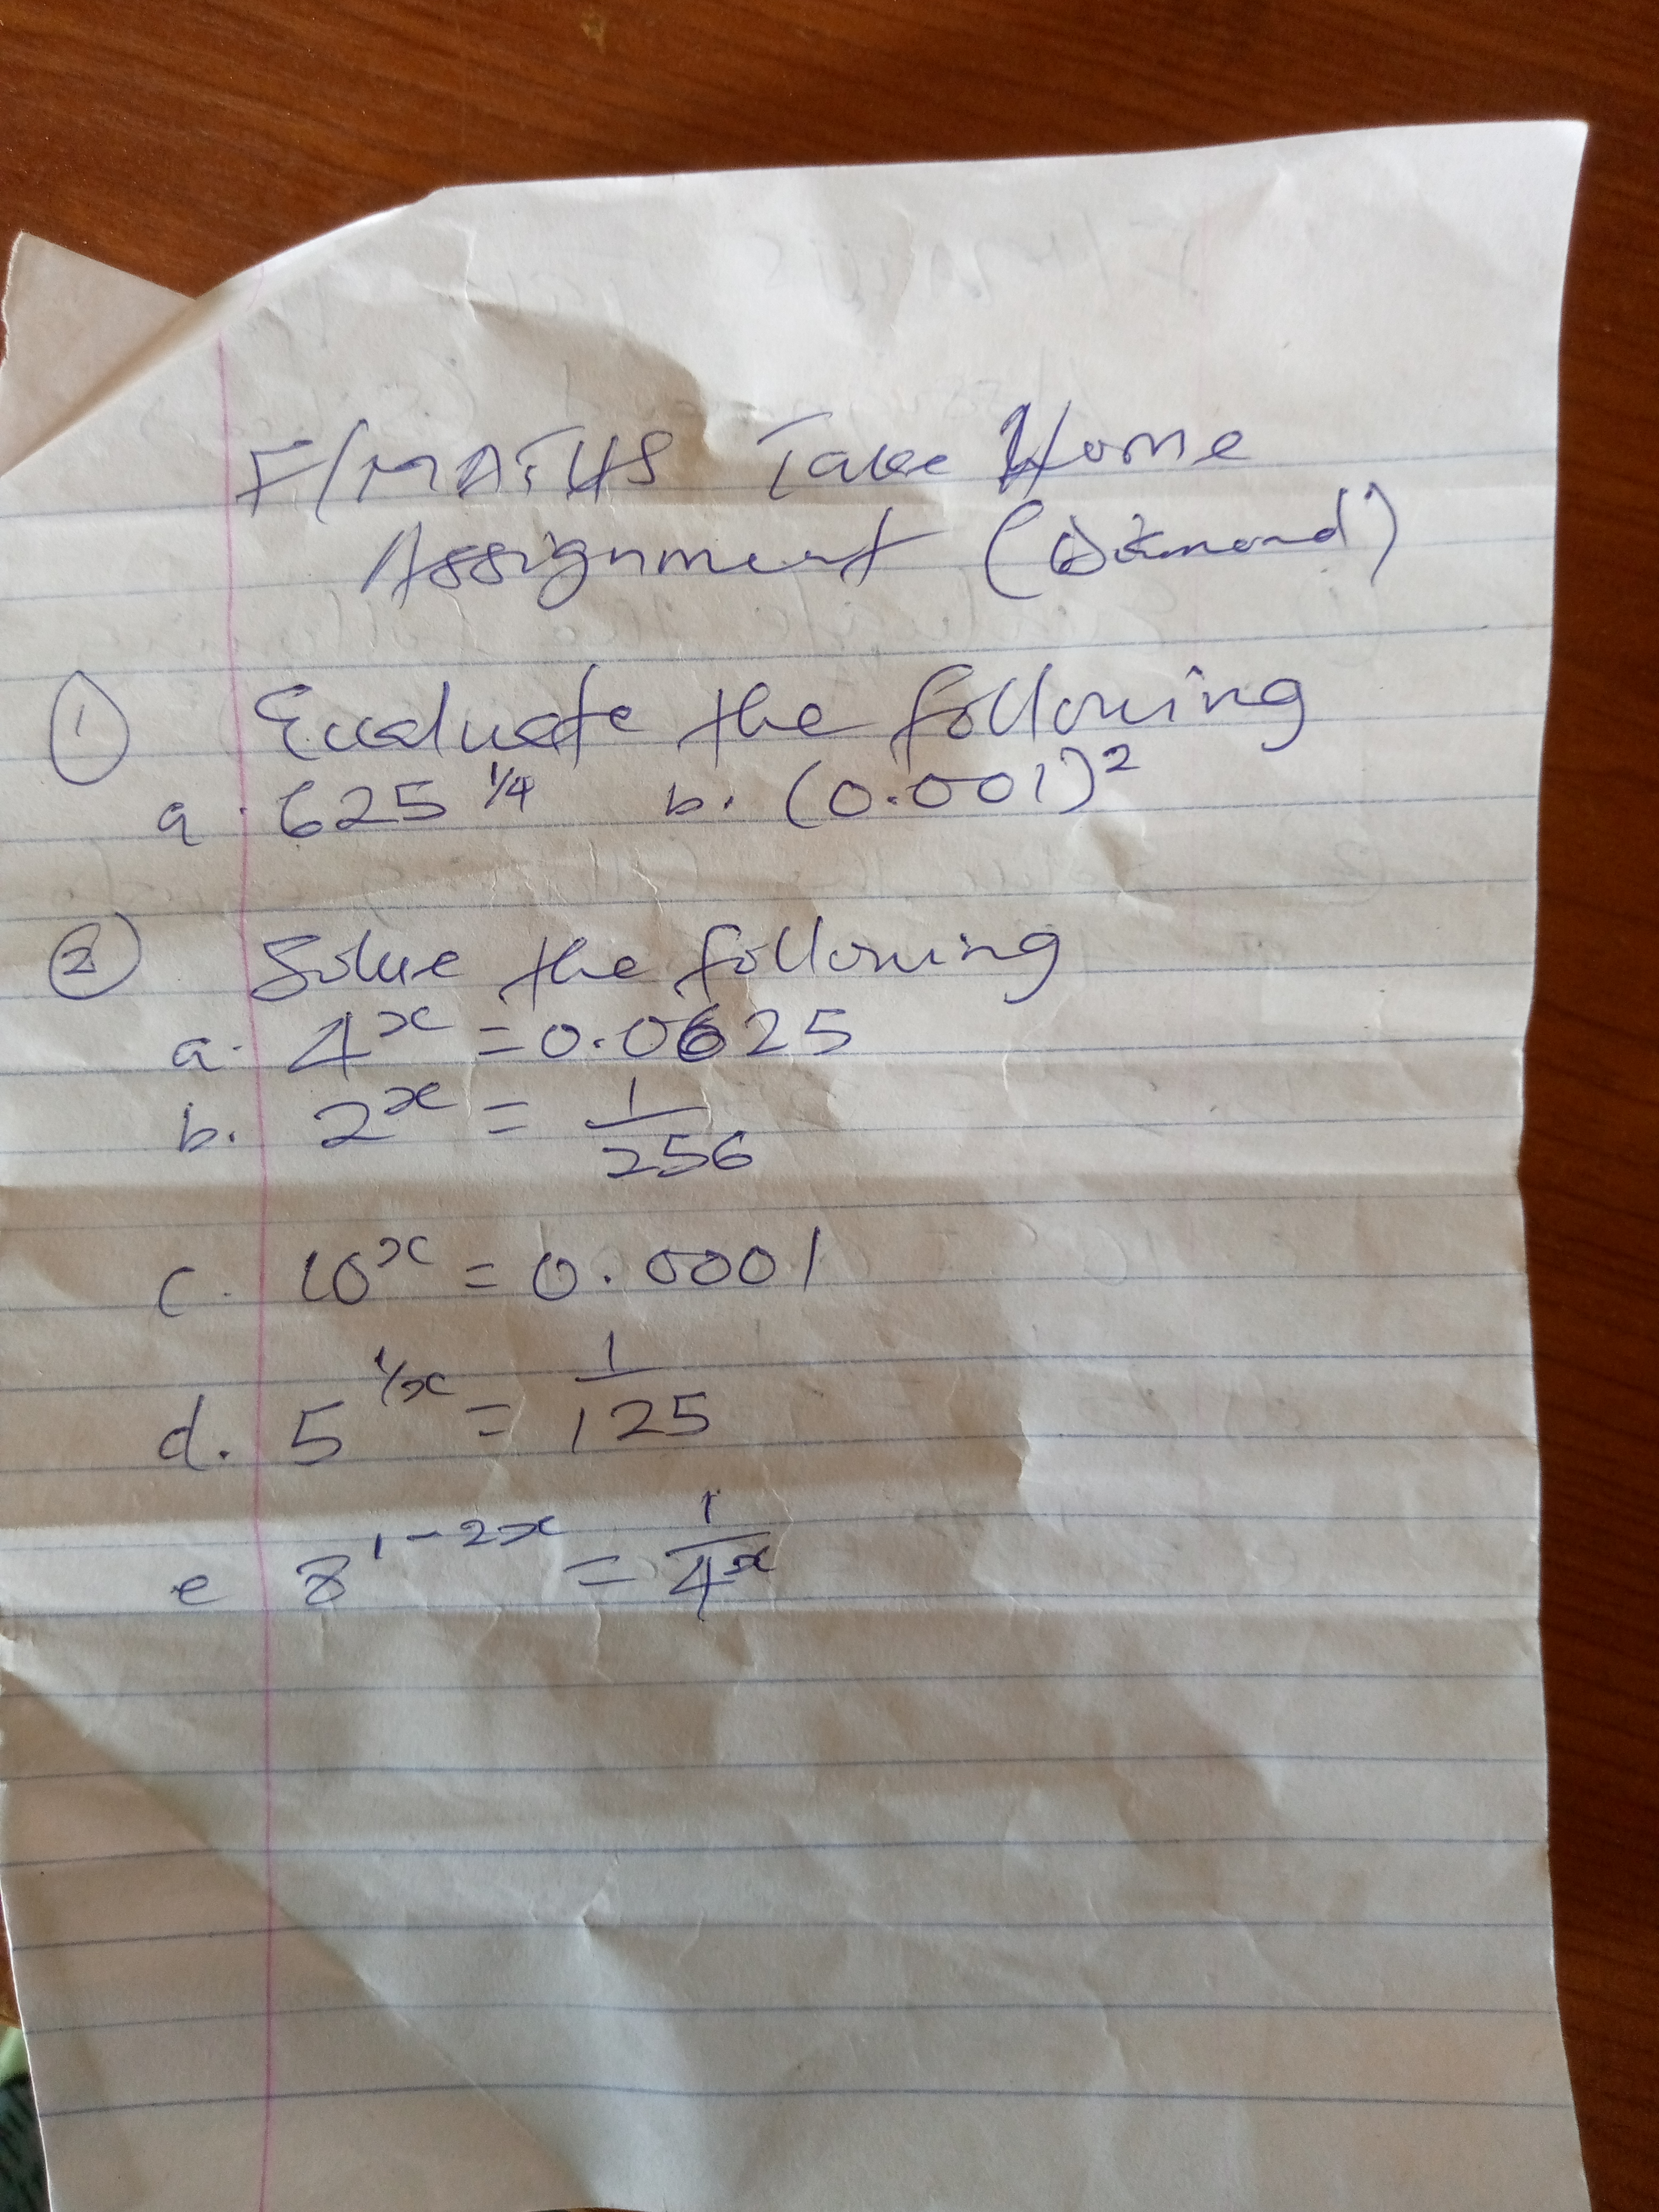 F/MATHS Take Home
Assignment (Diamond)
① Evaluate the following
a. 625^1/4 b. (0.001)²
② Solve the following
a. 4^x = 0.0625
b. 2^x = 1/256
c. 10^x = 0.0001
d. 5^1/x = 1/125
e 8^1-2x = 1/4^x